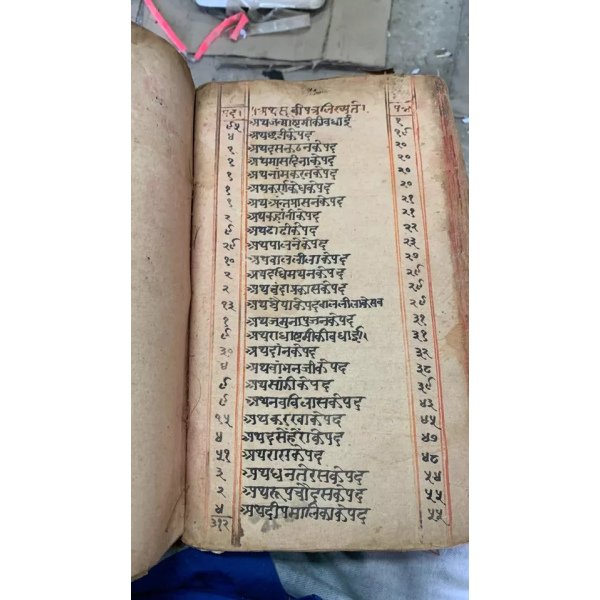 पद। अथसूचीपत्रलिख्यते। पत्र
अथजन्माष्टमीकीबधाई १
४ अथछठीकेपद १९
२ अथदसठनकेपद २०
१ अथमासदिनाकेपद २०
१ अथनांमकरनकेपद २०
१ अथकर्णवेधकेपद २०
१ अथअंनप्रासनकेपद २१
२ अथकहांनीकेपद २१
९ अथढाढीकेपद २२
२९ अथपालनेकेपद २३
१० अथबाललीलाकेपद २९
२ अथदधिमथनकेपद २९
२ अथचंदाप्रकासकेपद २९
१३ अथघैयाकेपदबाललीलाकेसब २९
१ अथजमुनापूजनकेपद ३१
९ अथराधाष्टमीकीबधाई। ३१
३० अथदांनकेपद ३२
४ अथवांमनजीकेपद ३८
९ अथसांझीकेपद ३९
९ अथनवविलासकेपद ४३
१५ अथकरखाकेपद ४५
४ अथदसेंहेंराकेपद ४७
५१ अथरासकेपद ४८
३ अथधनतेरसकेपद ५४
२ अथरूपचौदसकेपद ५५
४ अथदीपमालिकाकेपद ५५
३१२